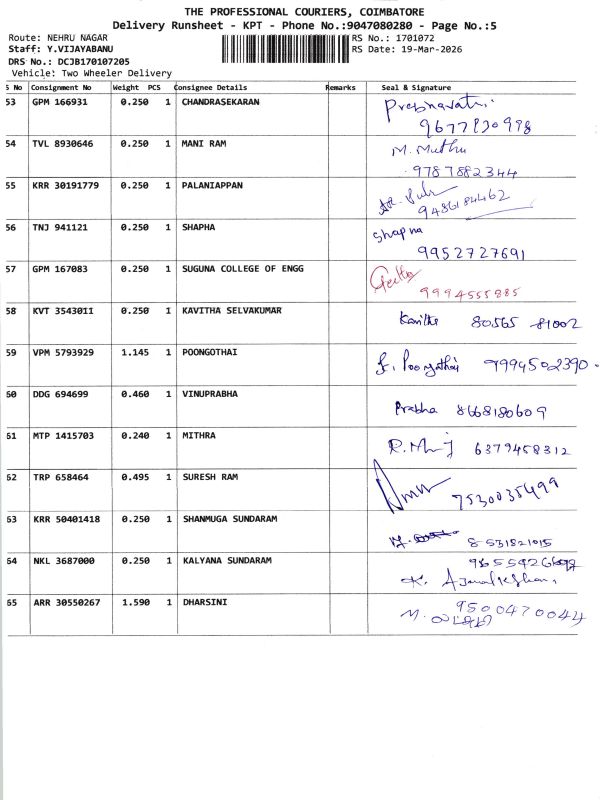 THE PROFESSIONAL COURIERS, COIMBATORE
Delivery Runsheet - KPT - Phone No.:9047080280 - Page No.:5
Route: NEHRU NAGAR RS No.: 1701072
Staff: Y.VIJAYABANU RS Date: 19-Mar-2026
DRS No.: DCJB170107205
Vehicle: Two Wheeler Delivery
S No Consignment No Weight PCS Consignee Details Remarks Seal & Signature
53 GPM 166931 0.250 1 CHANDRASEKARAN
54 TVL 8930646 0.250 1 MANI RAM M. Muthu
9787882344
55 KRR 30191779 0.250 1 PALANIAPPAN
9486184462
56 TNJ 941121 0.250 1 SHAPHA Shapna
9952727691
57 GPM 167083 0.250 1 SUGUNA COLLEGE OF ENGG Geetha
9994555885
58 KVT 3543011 0.250 1 KAVITHA SELVAKUMAR Kavitha 80565 81002
59 VPM 5793929 1.145 1 POONGOTHAI Poongothai 9994502390
60 DDG 694699 0.460 1 VINUPRABHA Prabha 8668180609
61 MTP 1415703 0.240 1 MITHRA 6379458312
62 TRP 658464 0.495 1 SURESH RAM 7530035499
63 KRR 50401418 0.250 1 SHANMUGA SUNDARAM 8531821015
64 NKL 3687000 0.250 1 KALYANA SUNDARAM
65 ARR 30550267 1.590 1 DHARSINI 9500470044